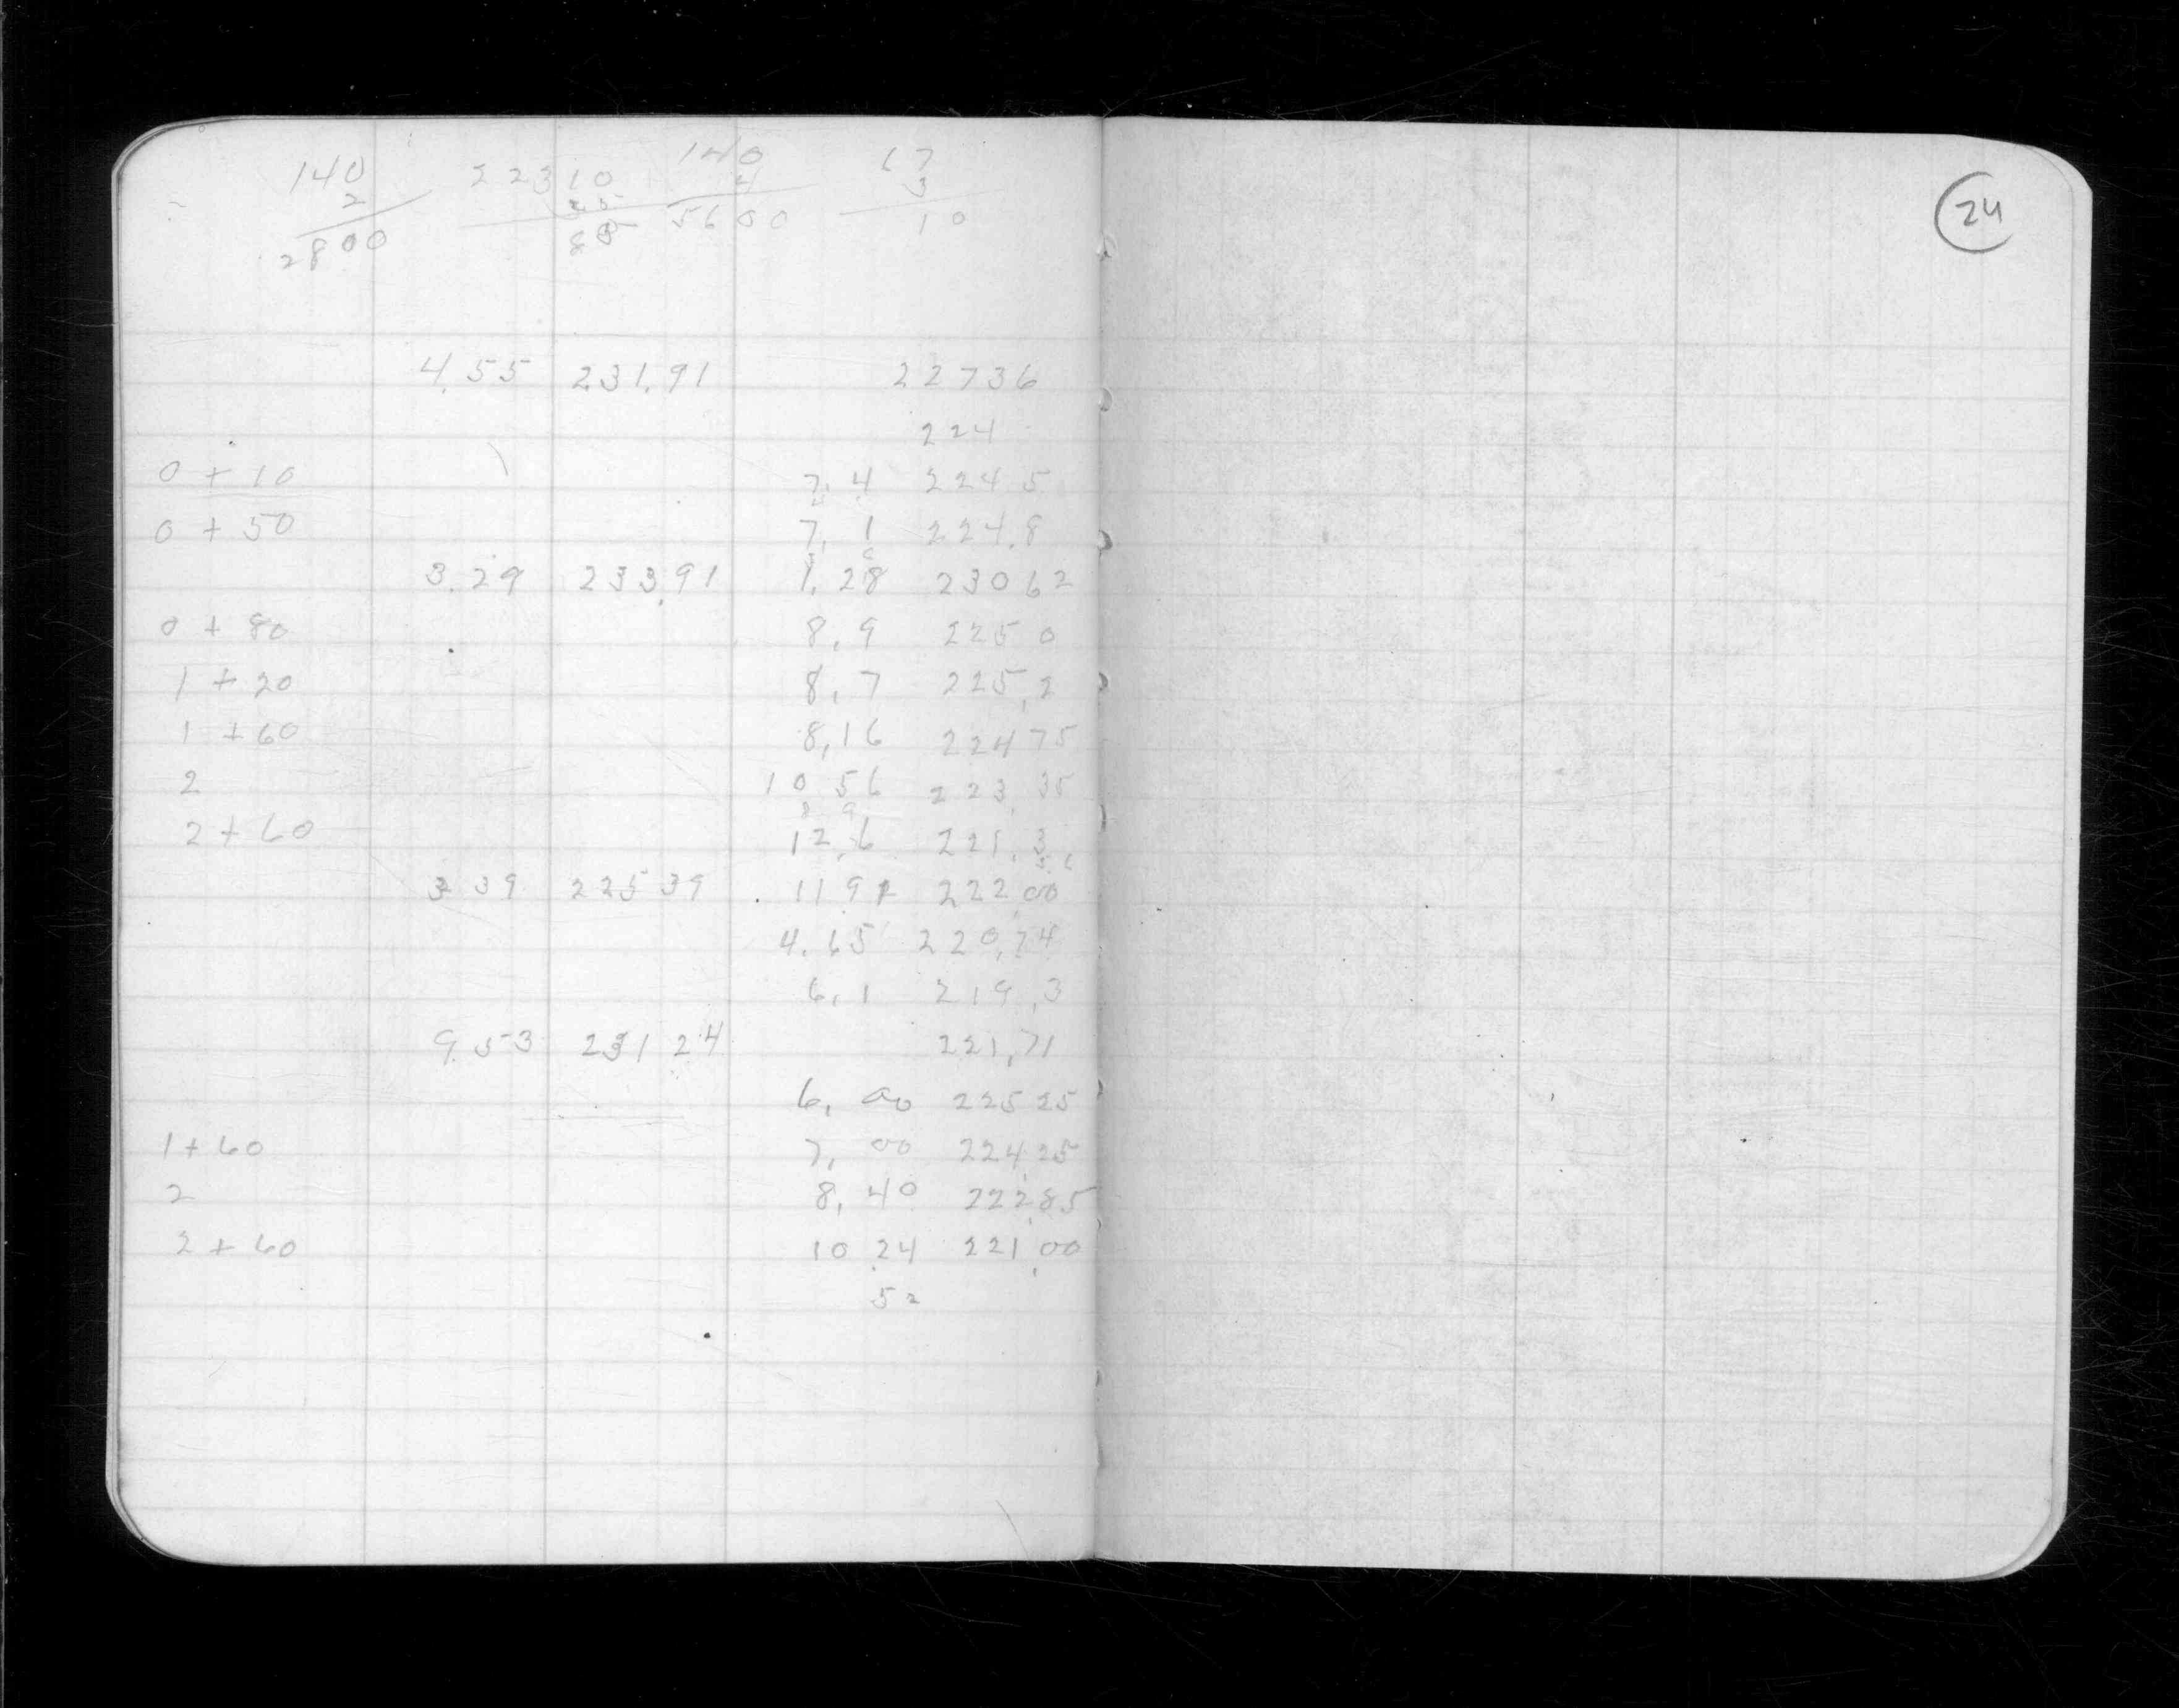 140 22310 140 67
2 25 4 3
2800 80 5600 10
4.55 231.91 22736
224
0 + 10 7.4 224.5
0 + 50 7.1 224.8
3.29 233.91 1.28 23062
0 + 80 8.9 225 0
1 + 20 8.7 225.2
1 + 60 8.16 224 75
2 10 56 223.35
2 + 60 12.6 221.3
3 39 225 39 11 91 222.00
4.65 220.74
6.1 219.3
9.53 231 24 221.71
6. 00 225 25
1 + 60 7. 00 224.25
2 8. 40 222.85
2 + 60 10.24 221.00
52
24